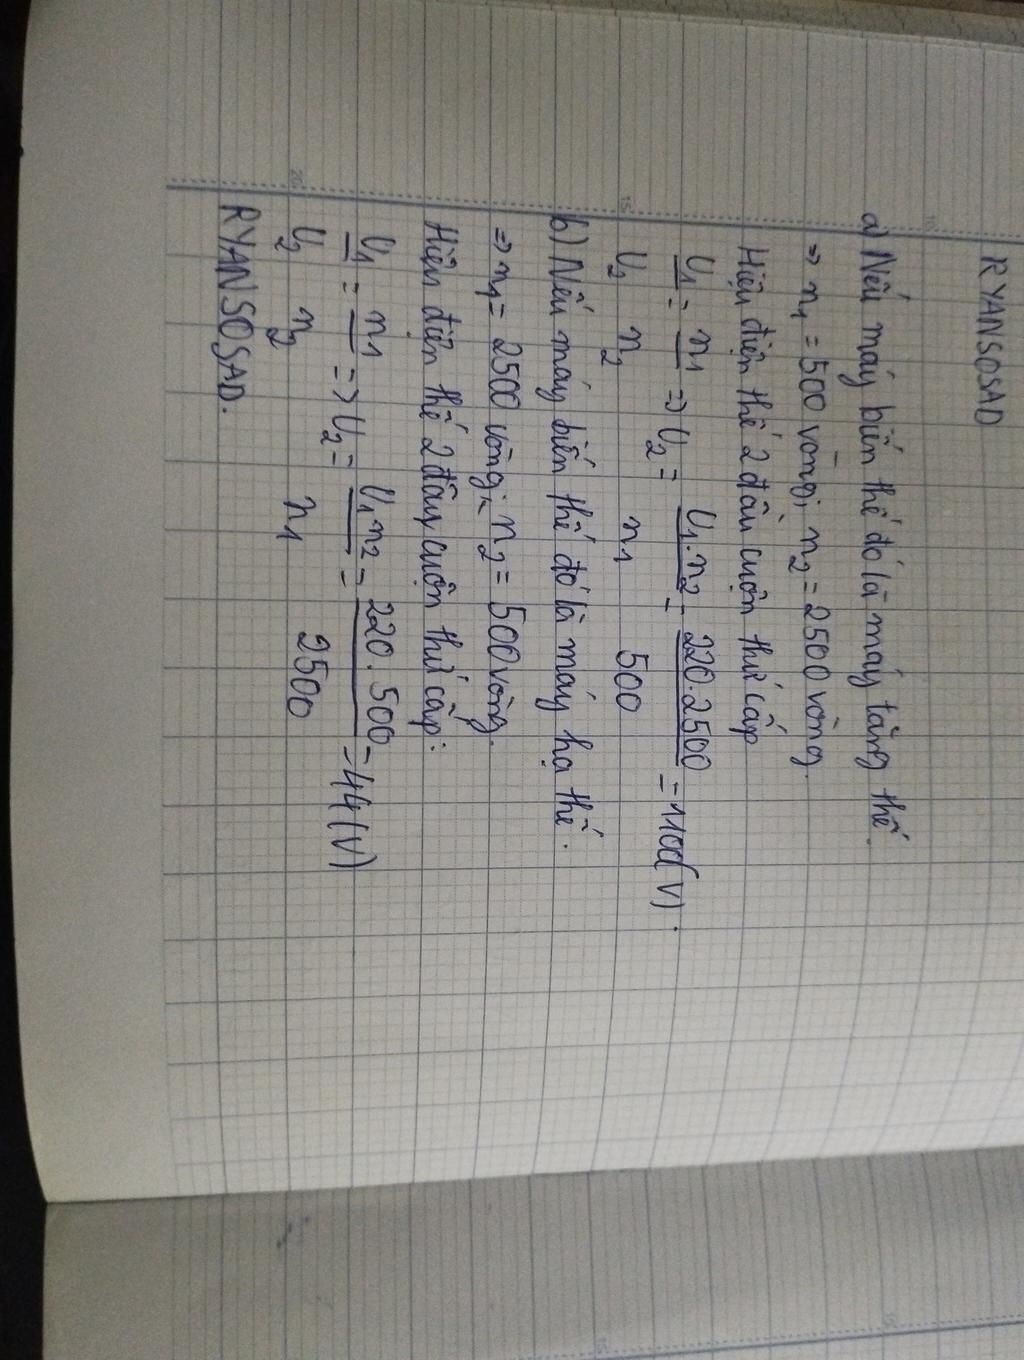 RYANSOSAD
a) Nếu máy biến thế đó là máy tăng thế.
=> n₁ = 500 vòng; n₂ = 2500 vòng.
Hiệu điện thế 2 đầu cuộn thứ cấp
U₁/U₂ = n₁/n₂ => U₂ = U₁.n₂/n₁ = 220.2500/500 = 1100(V).
b) Nếu máy biến thế đó là máy hạ thế.
=> n₁ = 2500 vòng; n₂ = 500 vòng.
Hiệu điện thế 2 đầu cuộn thứ cấp:
U₁/U₂ = n₁/n₂ => U₂ = U₁.n₂/n₁ = 220.500/2500 = 44(V)
RYANSOSAD.